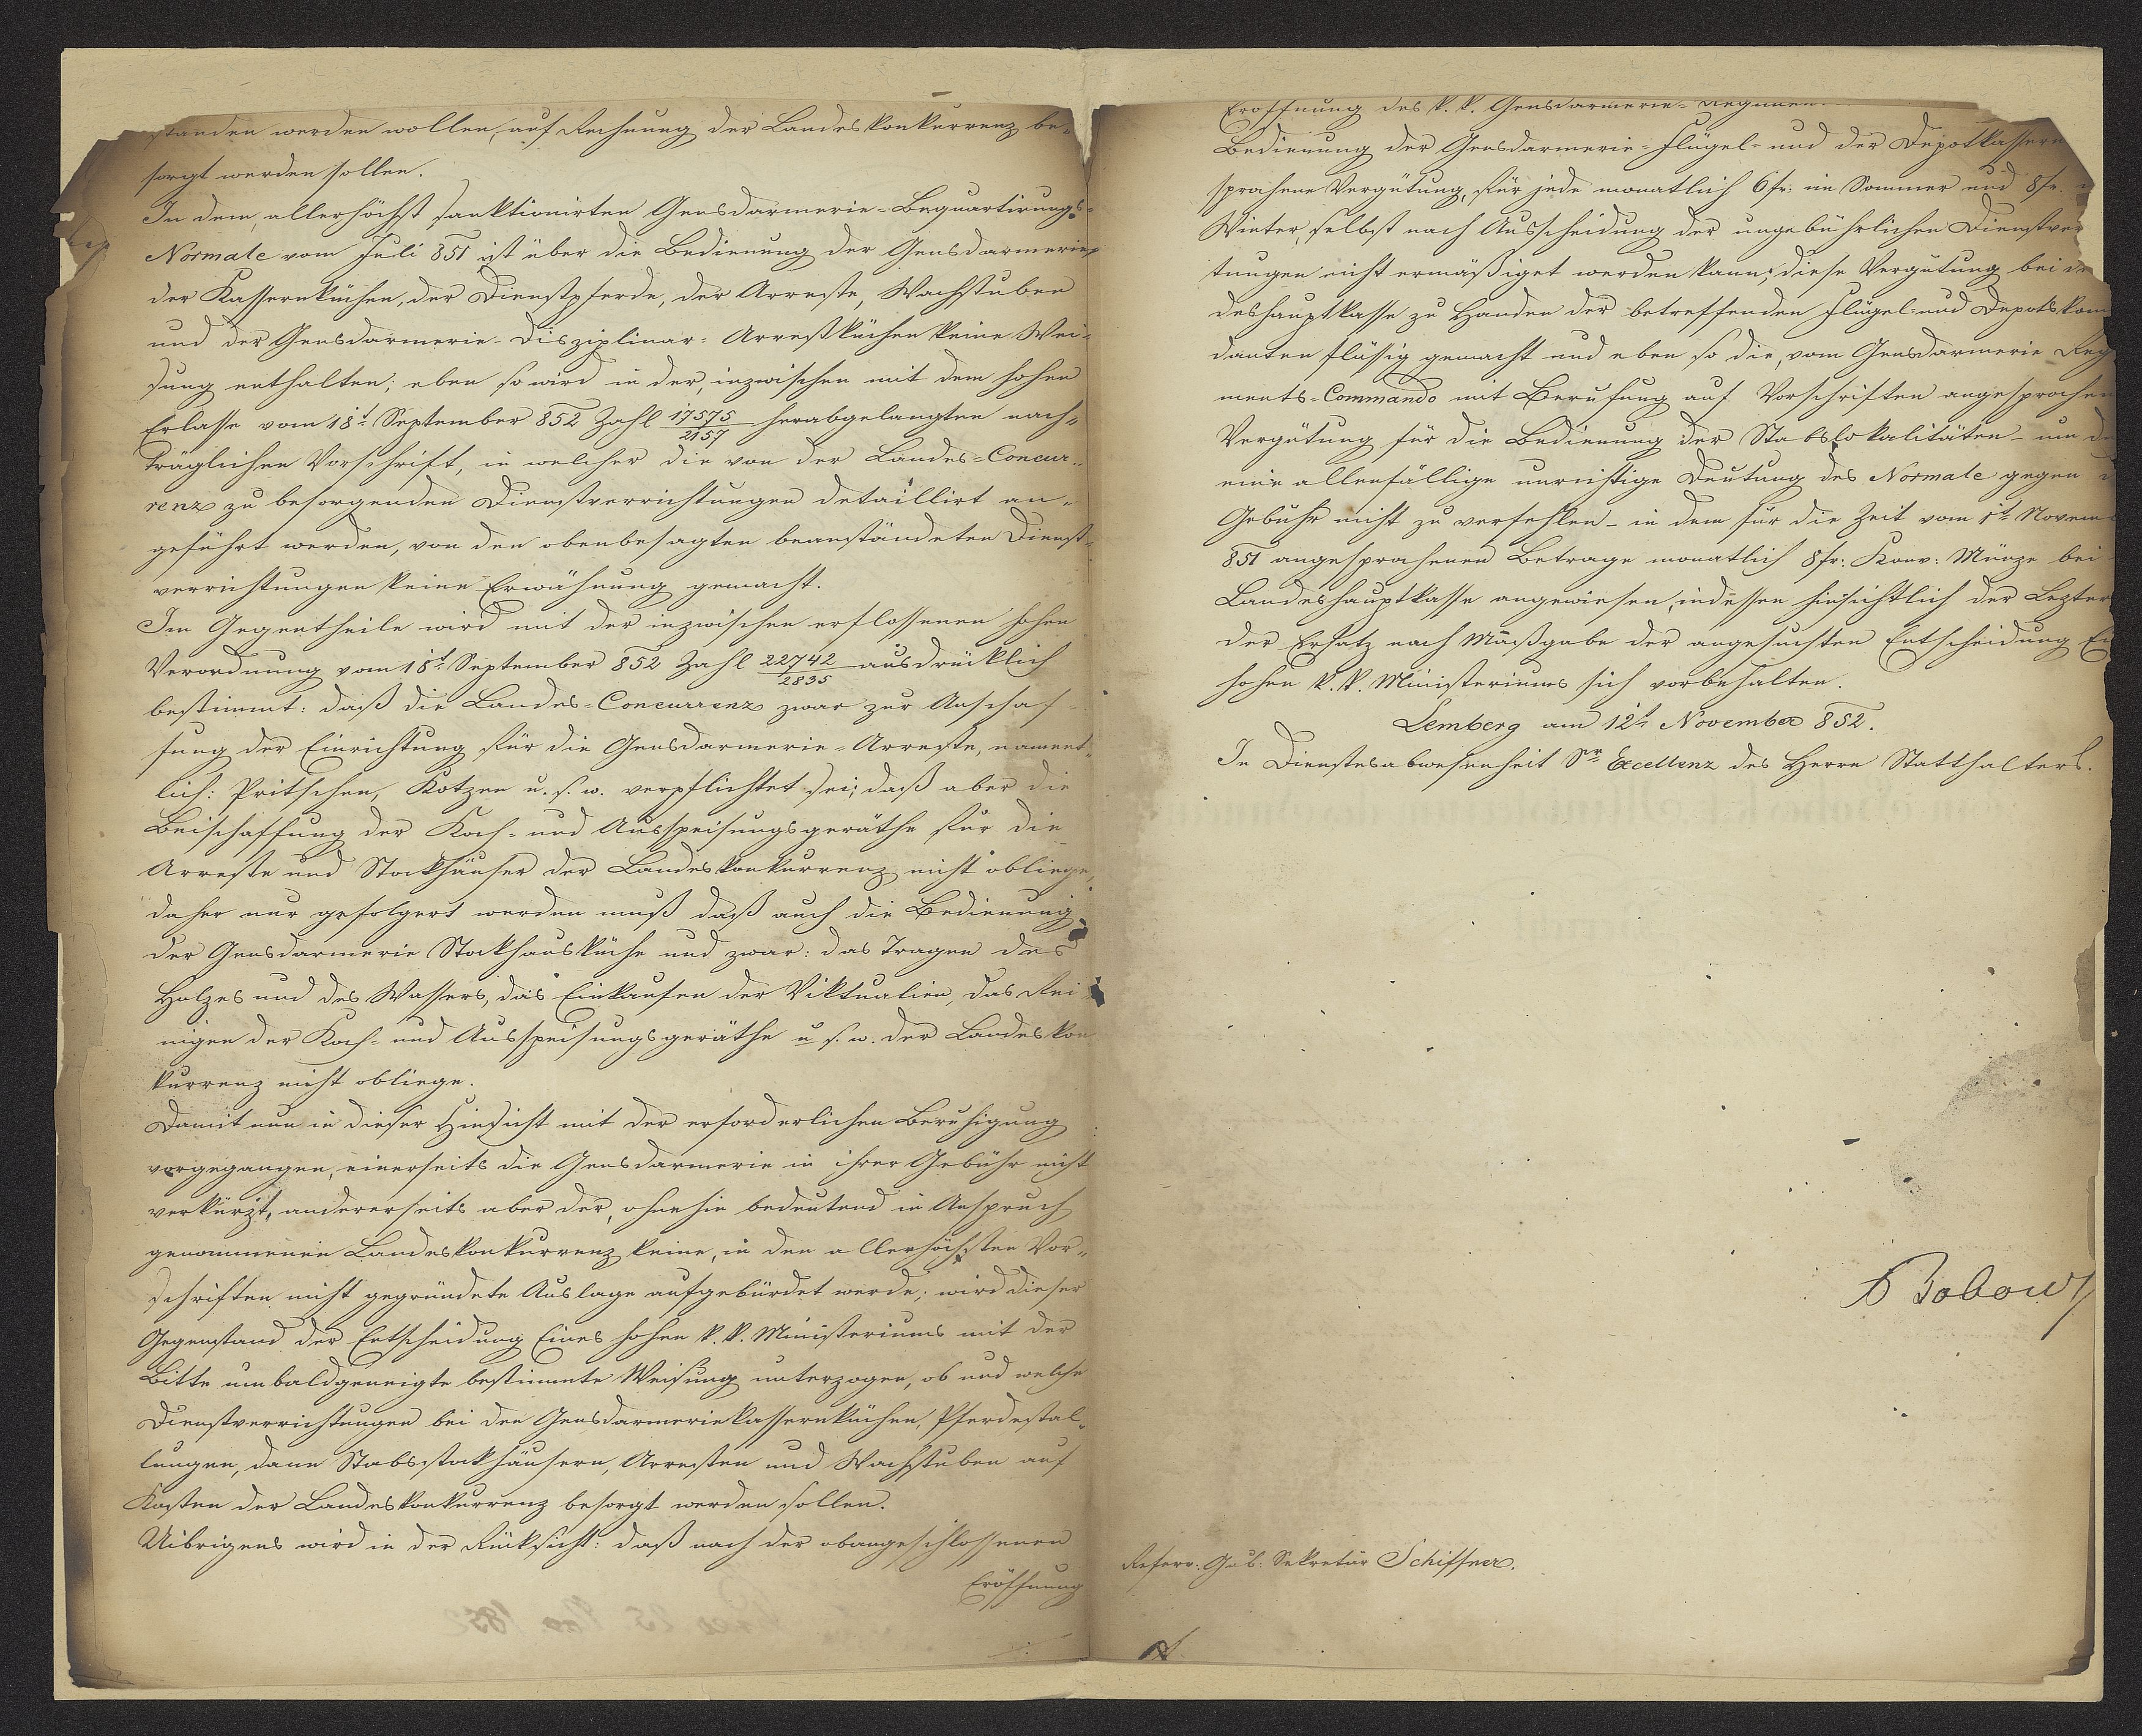 standen werden wollen, auf Rechnung der Landeskonkurrenz be-
sorgt werden sollen.
In dem, allerhöchst sanktionirten Gensdarmerie-Bequartirungs-
Normale vom Juli 851 ist über die Bedienung der Gensdarmerie,
der Kassernküchen, der Dienstpferde, der Arreste, Wachstuben
und der Gensdarmerie-Disziplinar-Arrestküchen keine Wei-
sung enthalten; eben so wird in der, inzwischen mit dem hohen
Erlasse vom 18t September 852 Zahl 17575/2157 herabgelangten nach-
träglichen Vorschrift, in welcher die von der Landes-Concur-
renz zu besorgenden Dienstverrichtungen detaillirt an-
geführt werden, von den obenbesagten beanständeten Dienst-
verrichtungen keine Erwähnung gemacht.
Im Gegentheile wird mit der inzwischen erflossenen hohen
Verordnung vom 18t September 852 Zahl 22742/2835 ausdrücklich
bestimmt: daß die Landes-Concurrenz zwar zur Anschaf-
fung der Einrichtung für die Gensdarmerie-Arreste, nament-
lich: Pritschen, Kotzen u. s. w. verpflichtet sei; daß aber die
Beischaffung der Koch- und Ausspeisungsgeräthe für die
Arreste und Stockhäuser der Landeskonkurrenz nicht obliege,
daher nur gefolgert werden muß daß auch die Bedienung
der Gensdarmerie Stockhausküche und zwar: das Tragen des
Holzes und des Wassers, das Einkaufen der Viktualien, das Rei-
nigen der Koch- und Ausspeisungsgeräthe u. s. w. der Landeskon
kurrenz nicht obliege.
Damit nun in dieser Hinsicht mit der erforderlichen Beruhigung
vorgegangen, einerseits die Gensdarmerie in ihrer Gebühr nicht
verkürzt, andererseits aber der, ohnehin bedeutend in Anspruch
genommenen Landeskonkurrenz keine, in den allerhöchsten Vor-
schriften nicht gegründete Auslage aufgebürdet werde; wird dieser
Gegenstand der Entscheidung Eines hohen k. k. Ministeriums mit der
Bitte um baldgeneigte bestimmte Weisung unterzogen, ob und welche
Dienstverrichtungen bei den Gensdarmeriekassernküchen, Pferdestal-
lungen, dann Stabsstockhäusern, Arresten und Wachstuben auf
Kosten der Landeskonkurrenz besorgt werden sollen.
Uibrigens wird in der Rücksicht: daß nach der obangeschlossenen
Eröffnung
Eröffnung des k. k. Gensdarmerie-Regimen
Bedienung der Gensdarmerie-Flügel- und der Depotkassern
sprochene Vergütung, für jede monatlich 6 fr: im Sommer und 8 fr.
Winter, selbst nach Ausscheidung der ungebührlichen Dienstver
tungen nicht ermäßiget werden kann; diese Vergütung bei de
deshauptkasse zu Handen der betreffenden Flügel- und Depotskom
danten flüssig gemacht und eben so die, vom Gensdarmerie Reg
ments-Commando mit Berufung auf Vorschriften angesprochen
Vergütung für die Bedienung der Stabslokalitäten - um d
eine allenfällige unrichtige Deutung des Normale gegen
Gebühr nicht zu verfehlen - in dem für die Zeit vom 1t Novem
851 angesprochenen Betrage monatlich 8 fr: Konv: Münze bei
Landeshauptkasse angewiesen, indessen hinsichtlich der Lezter
der Ersatz nach Maßgabe der angesuchten Entscheidung Ei
hohen k. k. Ministeriums sich vorbehalten.
Lemberg am 12t November 852.
In Dienstesabwesenheit Sr Excellenz des Herrn Statthalters.
Referr: Gub: Sekretär Schiffner.